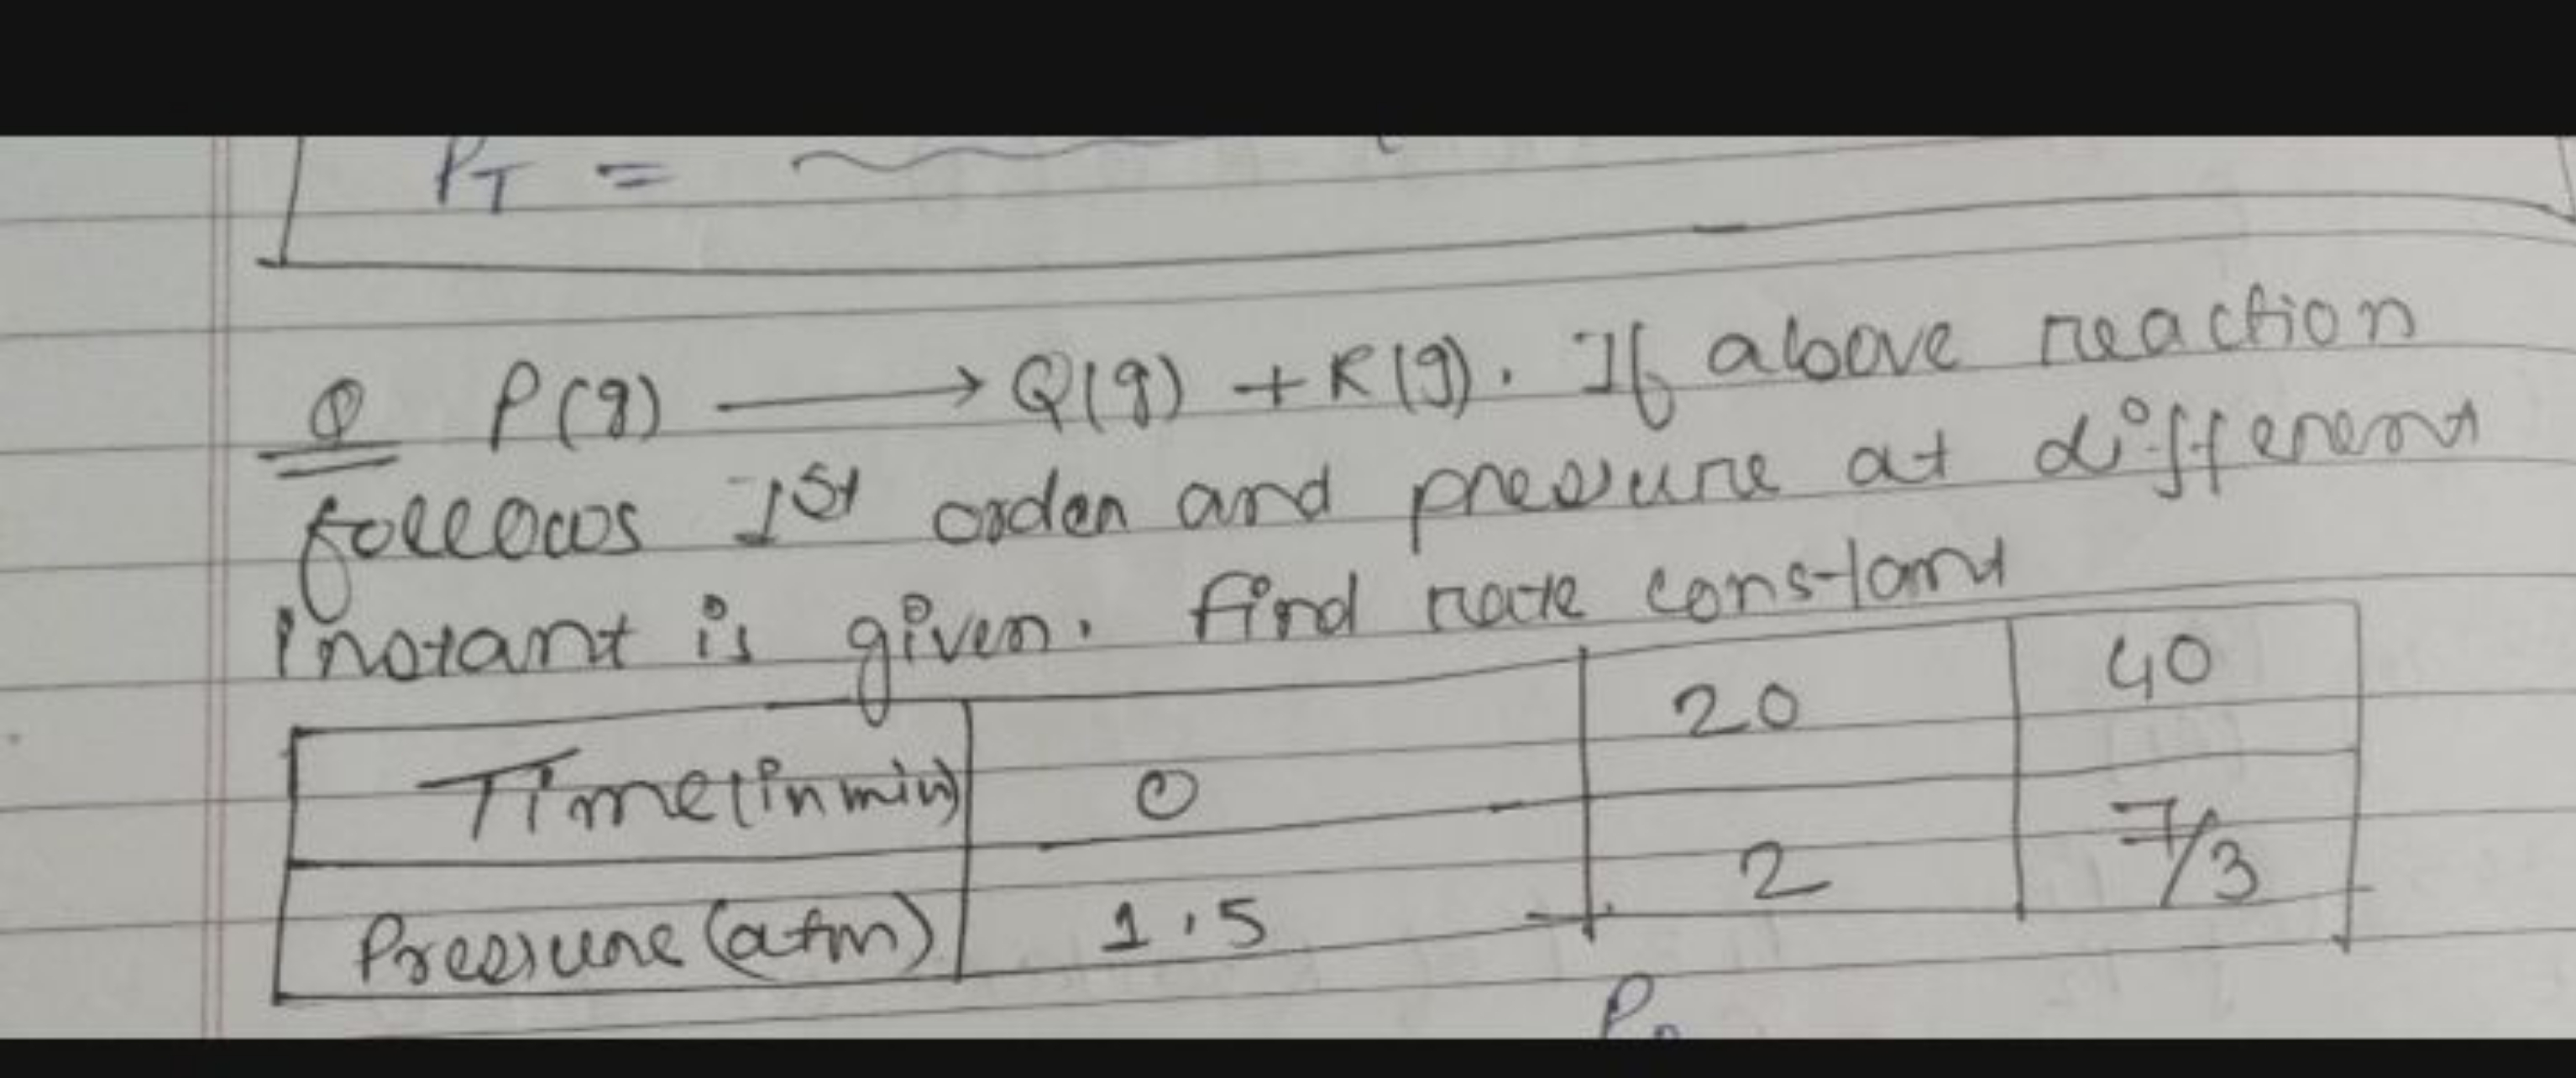 P_T =
Q P(g) → Q(g) + R(g). If above reaction
follows 1st order and pressure at different
instant is given. find rate constant
Time(in min) 0 20 40
Pressure (atm) 1.5 2 7/3